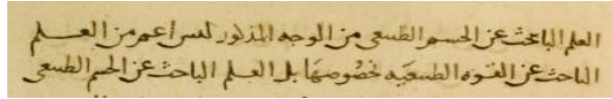 العلم الباحث عن الجسم الطبيعى من الوجه المذكور ليس اعم من العلم
الباحث عن القوه الطبيعيه بخصوصها بل العلم الباحث عن الجسم الطبيعى